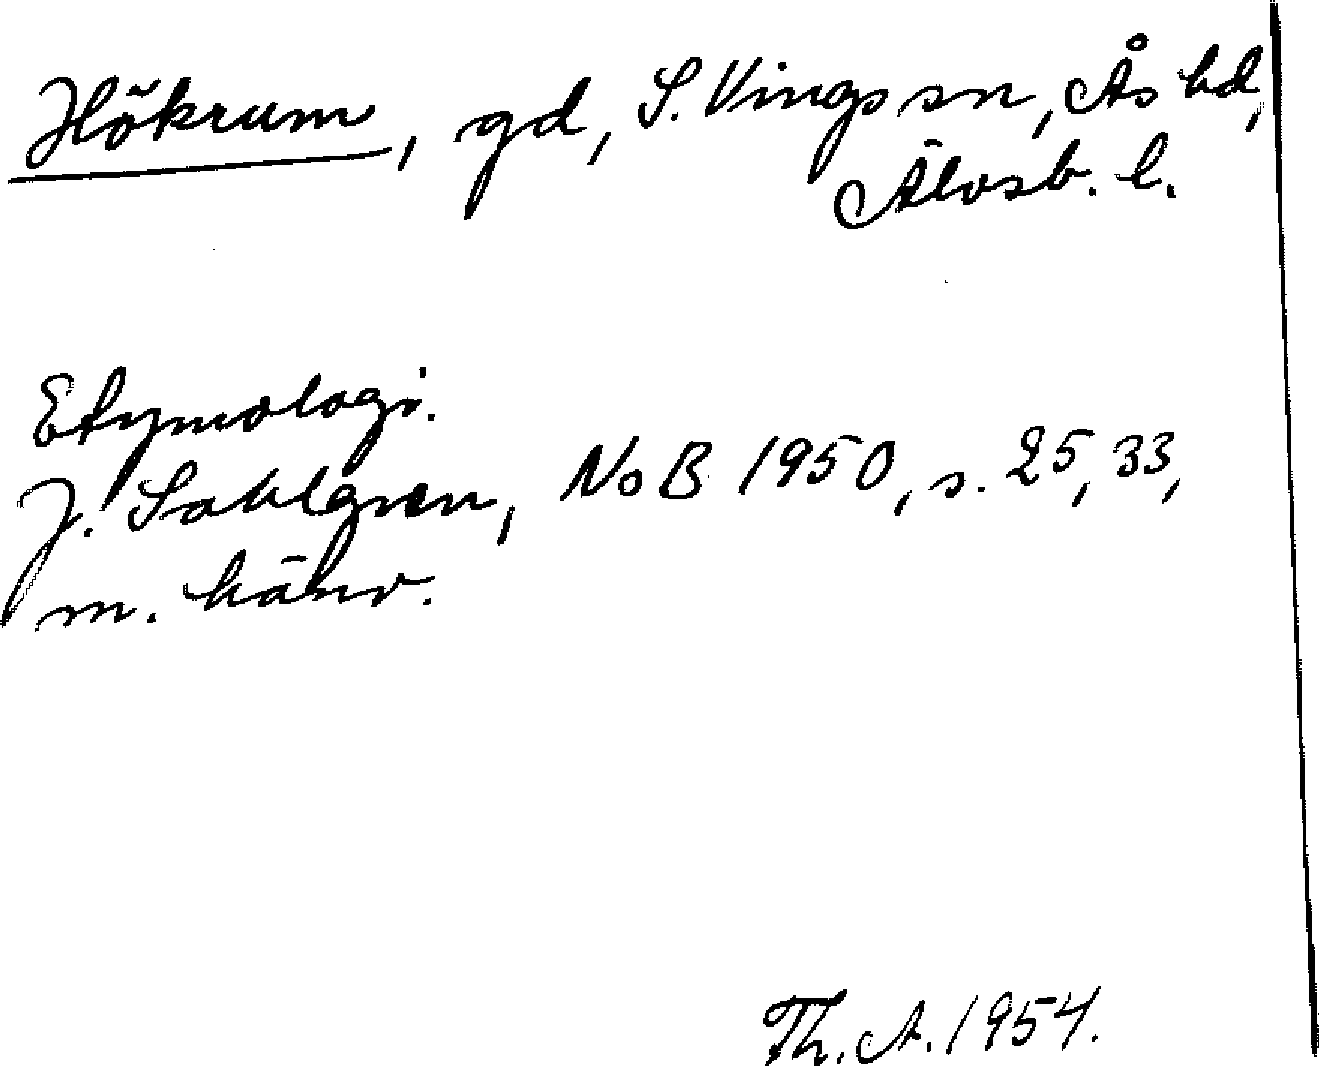 Hökrum, gd, S. Vings sn, Ås hd,
Älvsb. l.
Etymologi.
J. Sahlgren, NoB 1950, s. 25, 33,
m. hänv.
Th. A. 1954.